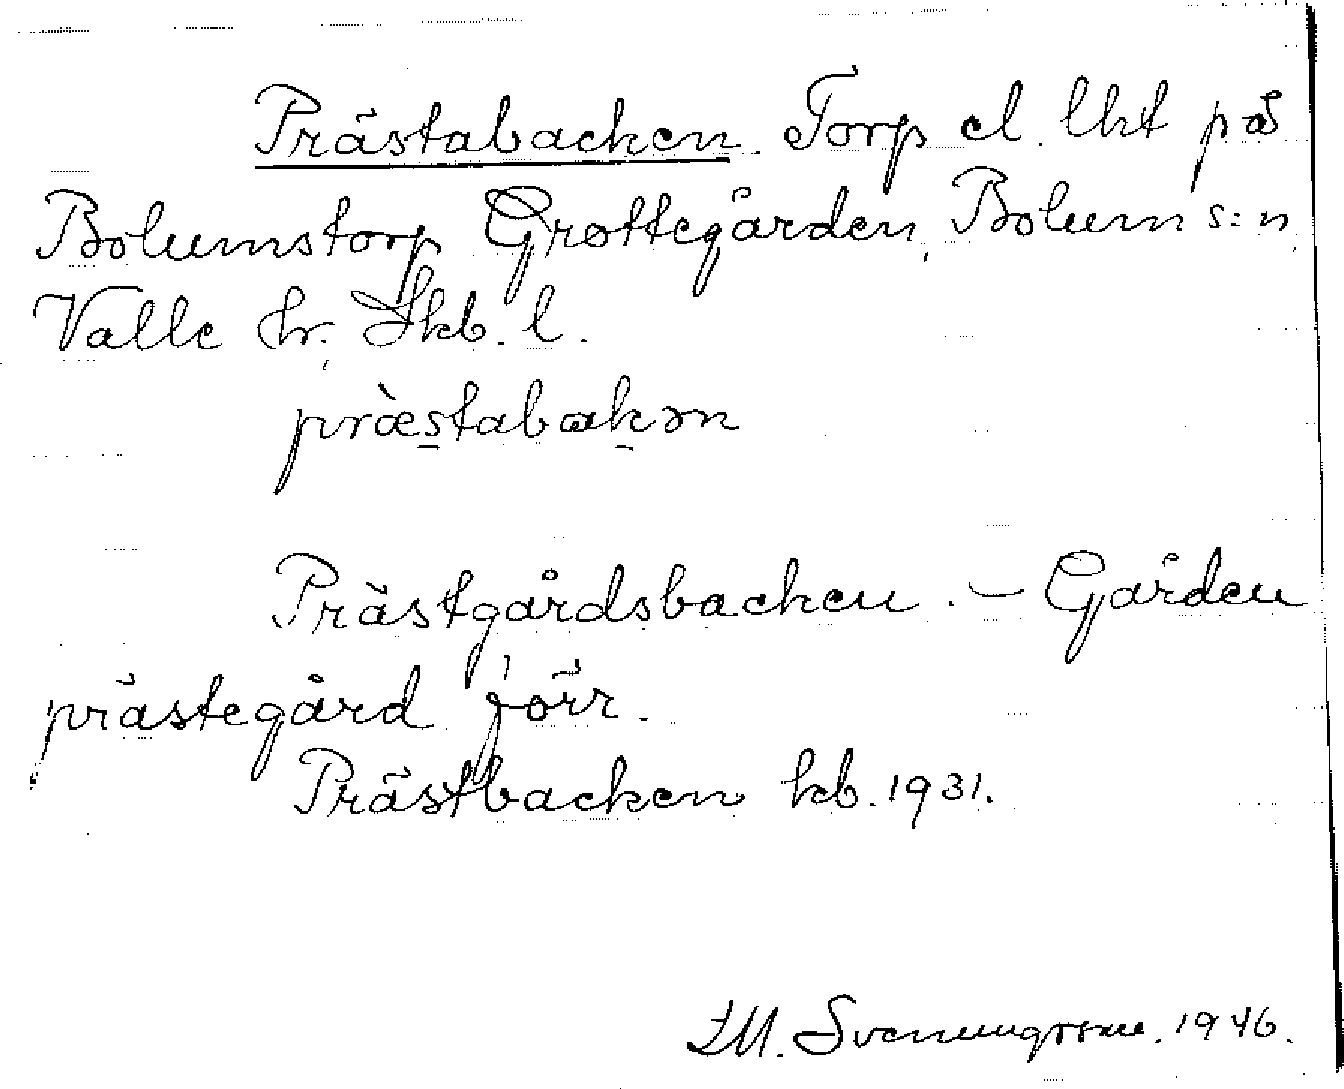 Prästabacken. Torp el. lht på
Bolumstorp Grottegården, Bolum s:n,
Valle hr. Skb. l.
præ̀stabakən
Prästgårdsbacken. — Gården
prästegård förr.
Prästbacken kb. 1931.
Svenungsson. 1946.